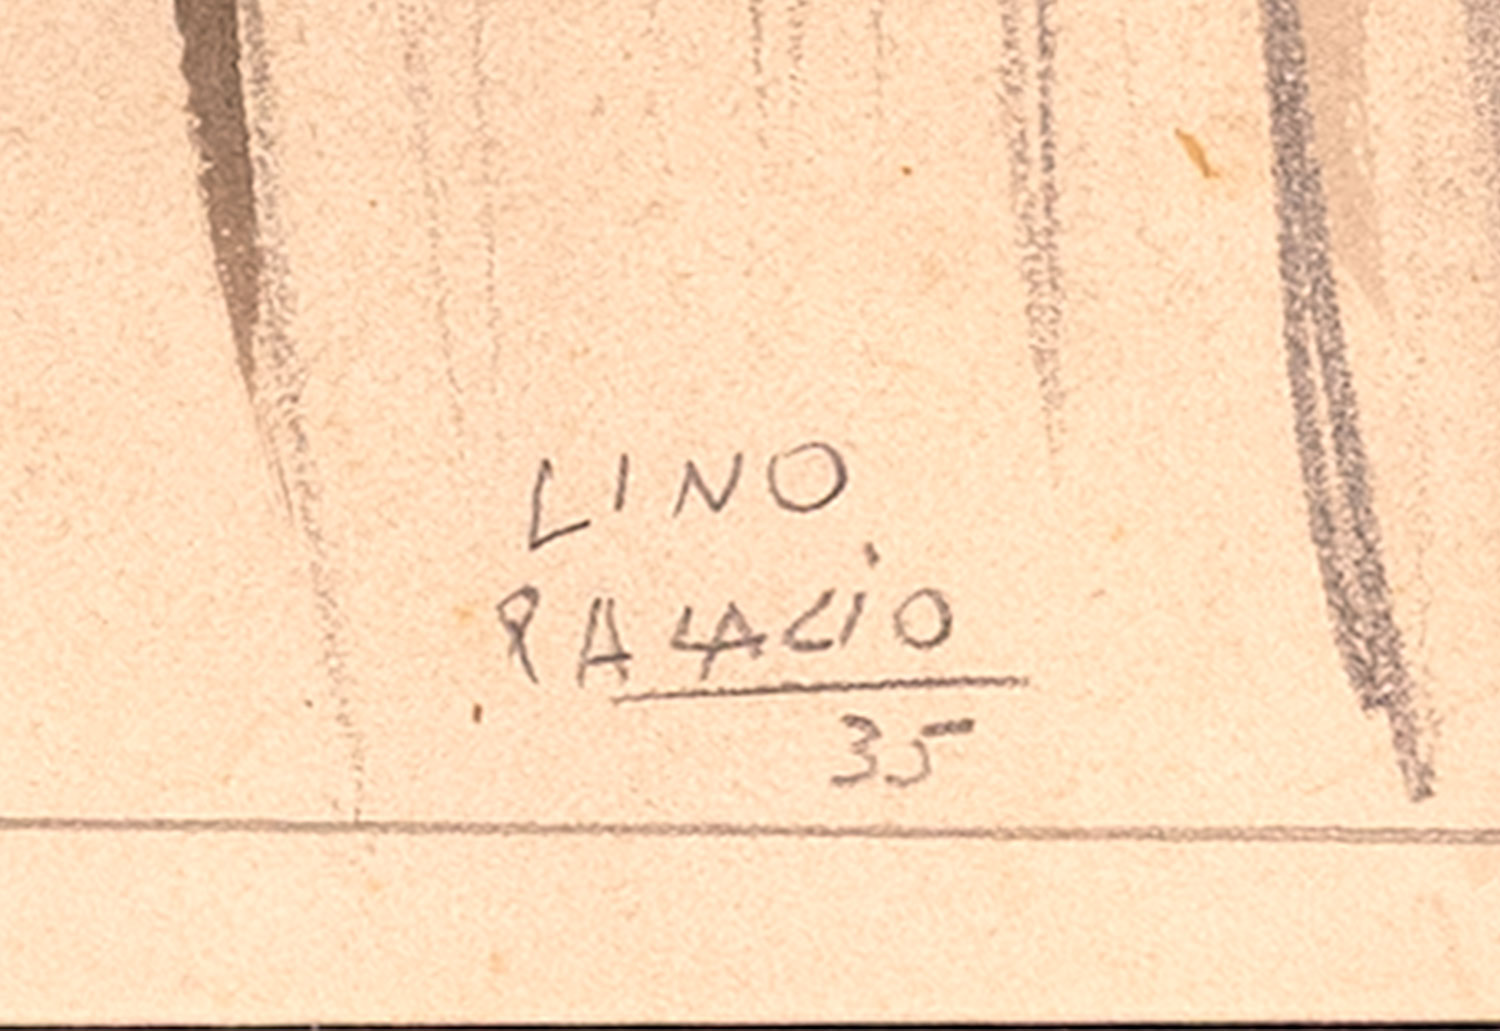 LINO
PALACiO
35